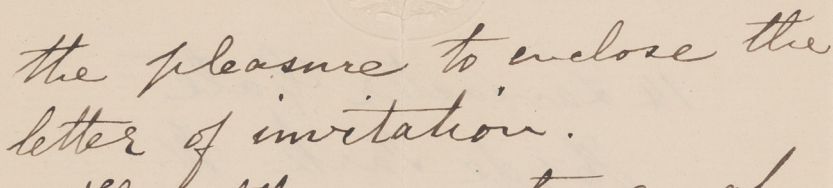 the pleasure to enclose the
letter of invitation.